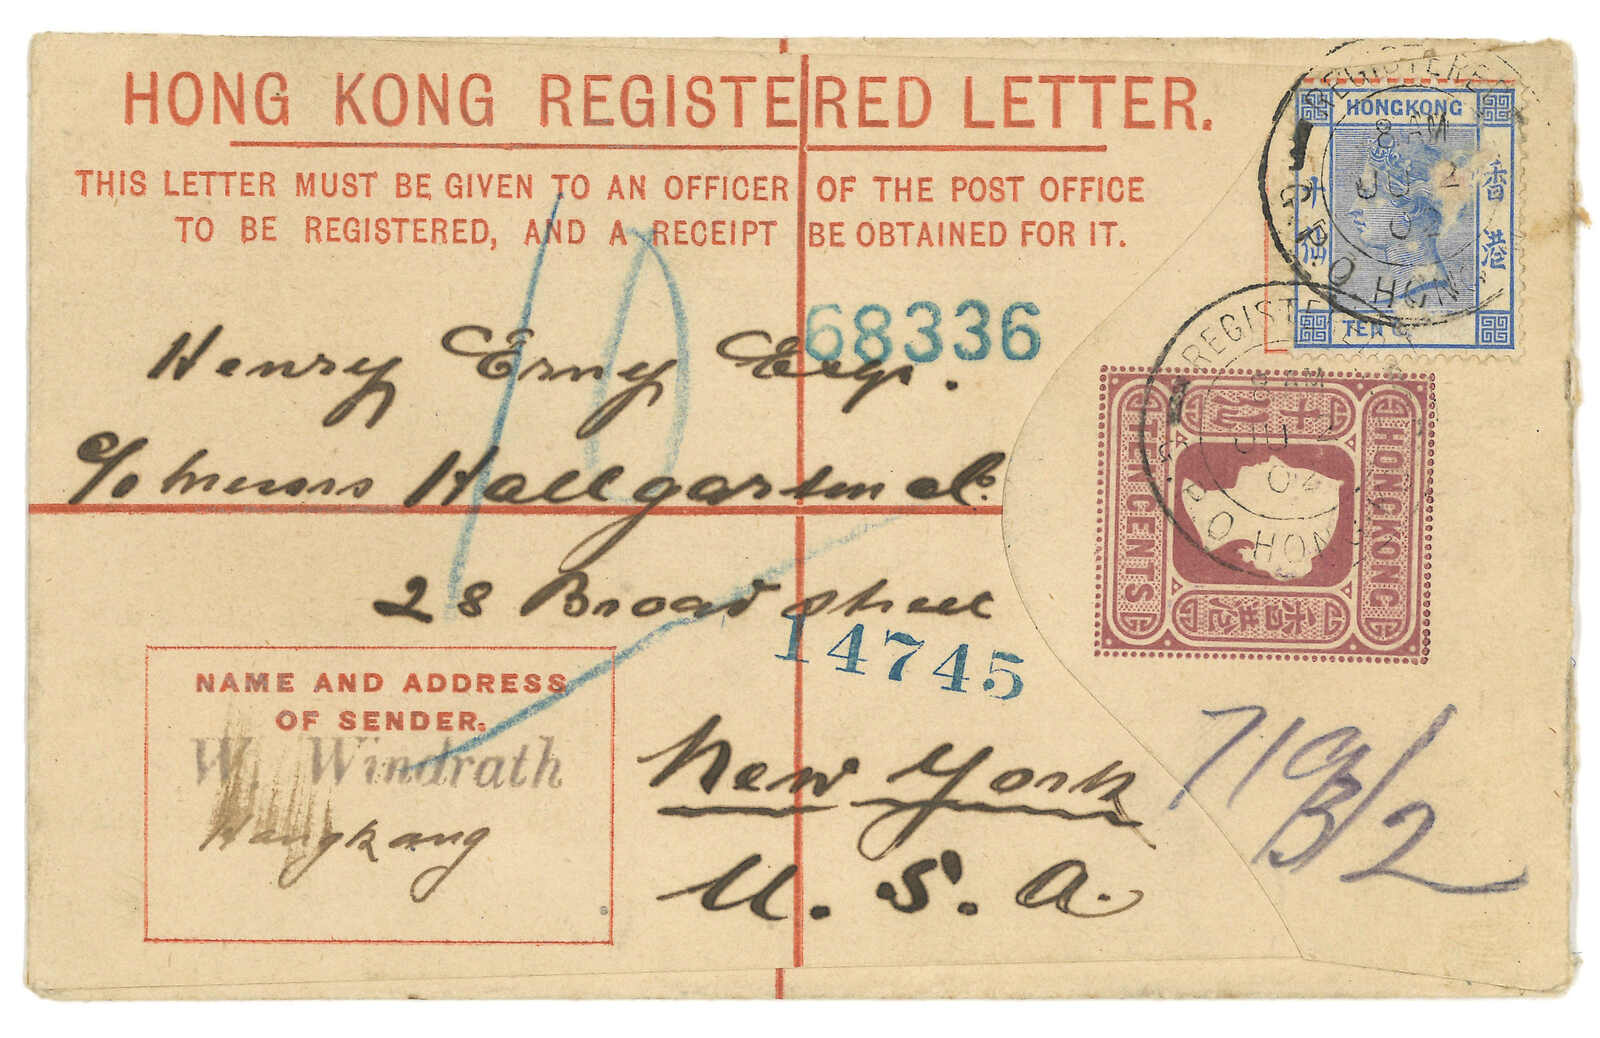 HONG KONG REGISTERED LETTER.
THIS LETTER MUST BE GIVEN TO AN OFFICER OF THE POST OFFICE
TO BE REGISTERED, AND A RECEIPT BE OBTAINED FOR IT.
HONGKONG
香港
TEN C
REGISTERED
8 AM
G.P.O HONG
10
68336
Henry Erny Esqr.
c/o Messrs Hallgarten & Co.
28 Broad Street
14745
New York
U. S. A.
REGISTERED
8 AM
JU 2
04
G.P.O HONG
HONGKONG
TEN CENTS
NAME AND ADDRESS
OF SENDER.
W. Windrath
Hongkong